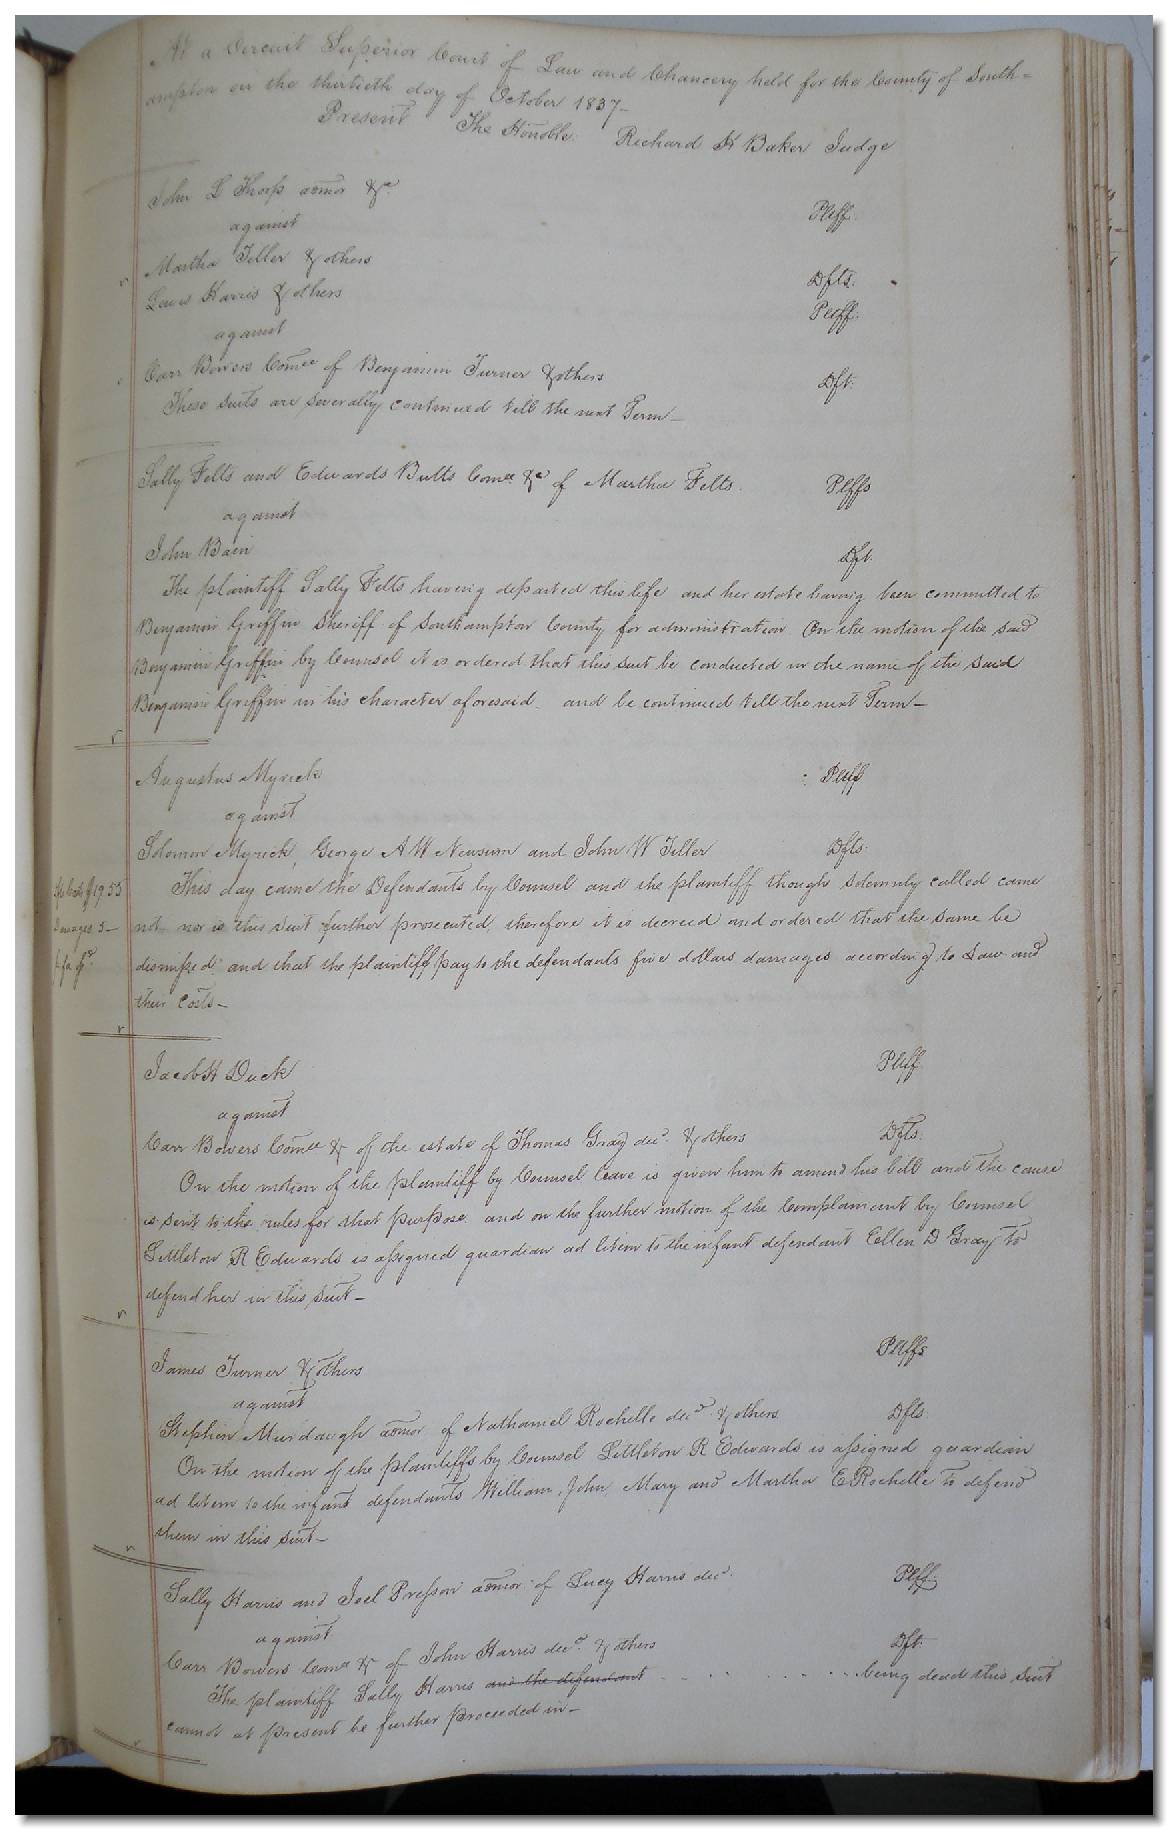 At a Circuit Superior Court of Law and Chancery held for the County of South=
ampton on the thirtieth day of October 1837-
Present The Honoble. Richard H Baker Judge
John L Thorp admor &c.
Pltff.
against
Martha Teller & others
Dfts.
Lewis Harris & others
Pltff.
against
Carr Bowers Comee of Benjamin Turner & others
Dft.
These suits are severally continued till the next Term-
Sally Felts and Edwards Butts Comee &c of Martha Felts.
Plffs
against
John Bain
Dft.
The plaintiff Sally Felts having departed this life and her estate having been committed to
Benjamin Griffin Sheriff of Southampton County for administration On the motion of the said
Benjamin Griffin by Counsel it is ordered that this suit be conducted in the name of the said
Benjamin Griffin in his character aforesaid. and be continued till the next Term-
Augustus Myrick
Pltff
against
Solomon Myrick, George A W Newsum and John W Teller
Dfts.
This day came the Defendants by Counsel and the plaintiff though solemnly called came
not nor is this suit further prosecuted, therefore it is decreed and ordered that the same be
dismissed; and that the plaintiff pay to the defendants five dollars damages according to Law and
their Costs-
19.55
Damages 5-
Jacob H Duck
Pltff.
against
Carr Bowers Comee & of the estate of Thomas Gray decd. & others
Dfts.
On the motion of the plaintiff by Counsel leave is given him to amend his bill and the cause
is sent to the rules for that purpose. and on the further motion of the Complainant by Counsel
Littleton R Edwards is assigned guardian ad litem to the infant defendant Ellen D Gray to
defend her in this suit-
James Turner & others
Pltffs
against
Stephen Murdaugh admor of Nathaniel Rochelle decd & others
Dfts.
On the motion of the plaintiffs by Counsel Littleton R Edwards is assigned guardian
ad litem to the infant defendants William, John Mary and Martha E Rochelle to defend
them in this suit-
Sally Harris and Joel Presson admor of Lucy Harris decd.
Plff.
against
Carr Bowers Comee & of John Harris decd. & others
Dft.
The plaintiff Sally Harris and the defendant . . . . . . . . being dead this suit
cannot at present be further proceeded in-